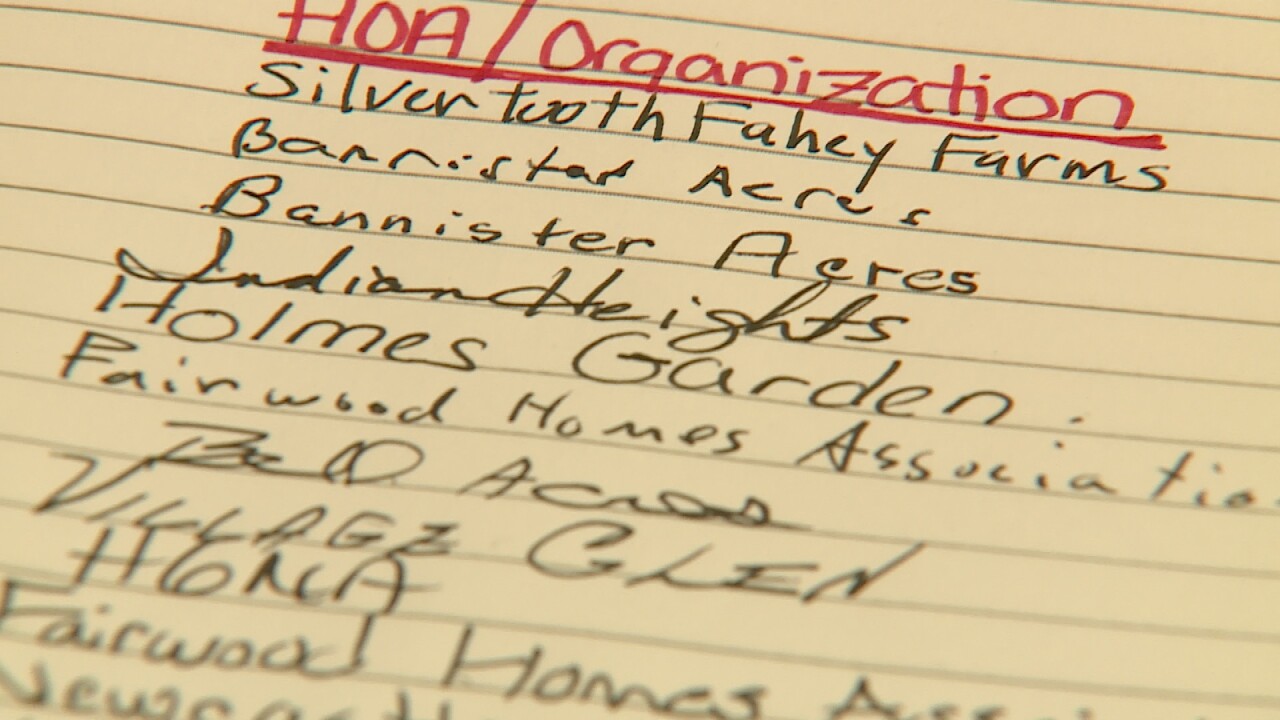 HOA/Organization
Silvertooth Fahey Farms
Bannister Acres
Bannister Acres
Indian Heights
Holmes Garden
Fairwood Homes Associatio
Acres
VILLAGE GLEN
HGNA
Fairwood Homes Assoc